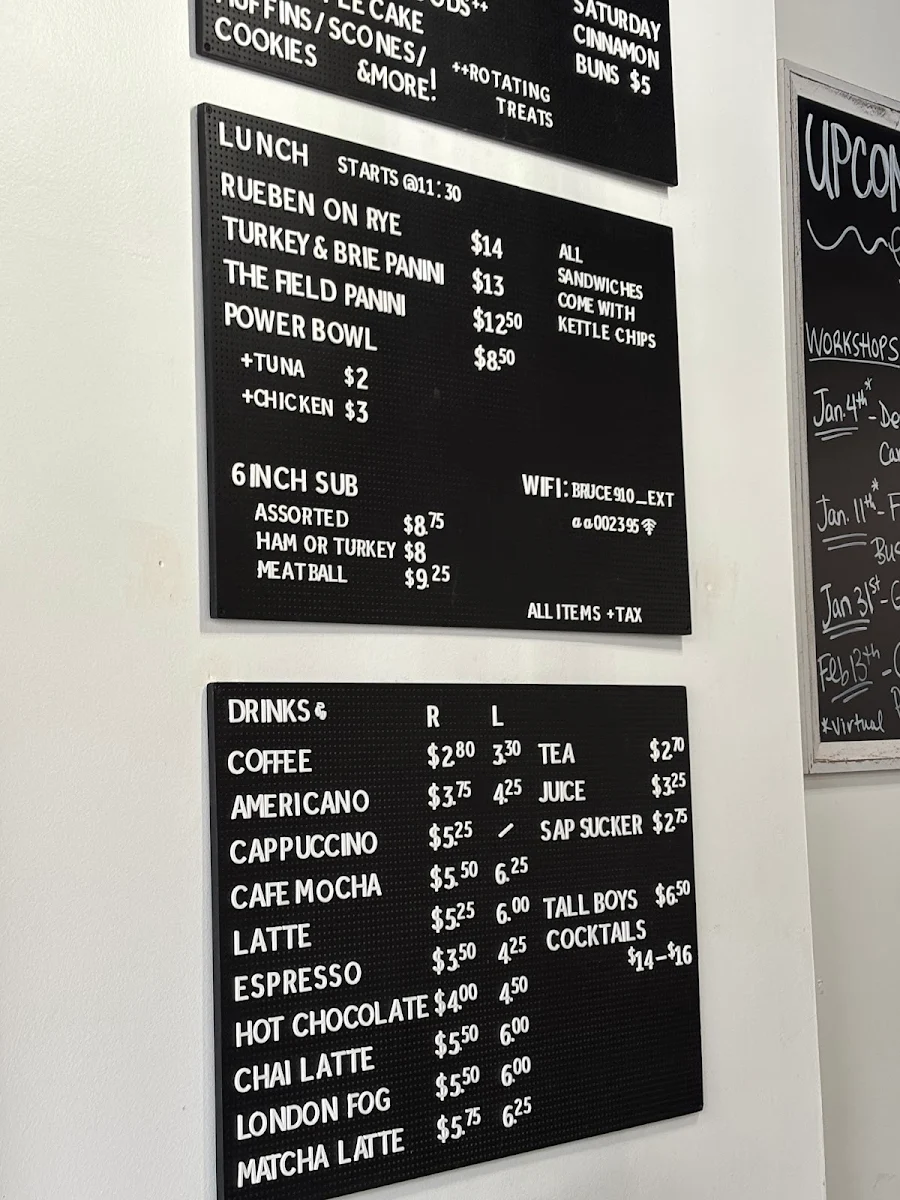 CAKE
MUFFINS/SCONES/
COOKIES &MORE!
++ROTATING
TREATS
SATURDAY
CINNAMON
BUNS $5
LUNCH STARTS @11:30
RUEBEN ON RYE $14
TURKEY & BRIE PANINI $13
THE FIELD PANINI $12.50
POWER BOWL $8.50
+TUNA $2
+CHICKEN $3
ALL
SANDWICHES
COME WITH
KETTLE CHIPS
6 INCH SUB
ASSORTED $8.75
HAM OR TURKEY $8
MEATBALL $9.25
WIFI: BRUCE910_EXT
aa002395
ALL ITEMS +TAX
DRINKS & R L
COFFEE $2.80 3.30
AMERICANO $3.75 4.25
CAPPUCCINO $5.25 /
CAFE MOCHA $5.50 6.25
LATTE $5.25 6.00
ESPRESSO $3.50 4.25
HOT CHOCOLATE $4.00 4.50
CHAI LATTE $5.50 6.00
LONDON FOG $5.50 6.00
MATCHA LATTE $5.75 6.25
TEA $2.70
JUICE $3.25
SAP SUCKER $2.75
TALL BOYS $6.50
COCKTAILS
$14-$16
UPCOM
WORKSHOPS
Jan. 4th* - De
Jan. 11th* - F
Jan 31st - G
Feb 13th -
*Virtual